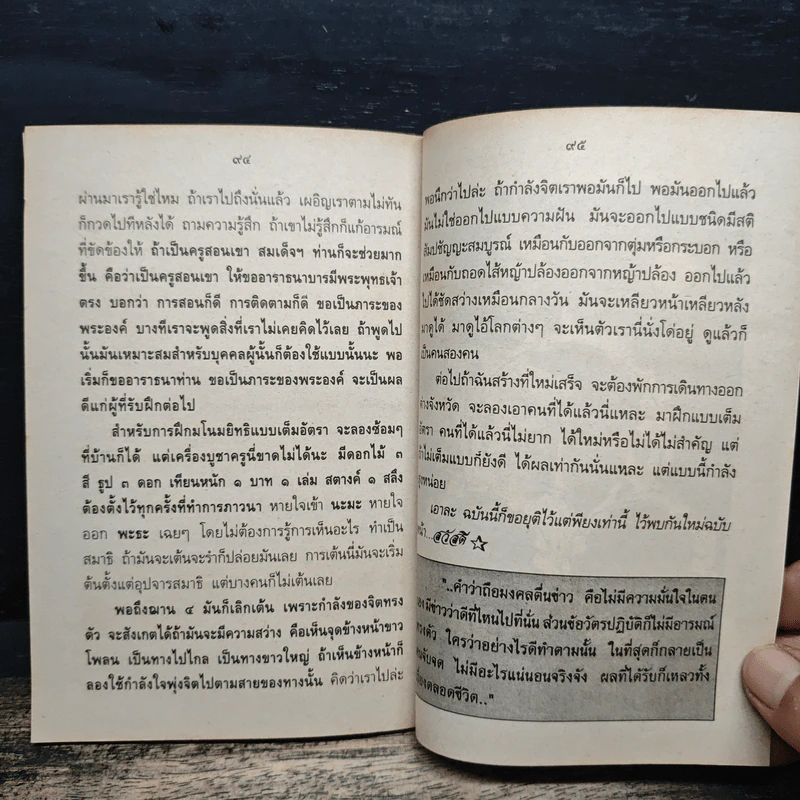 ๙๔
ผ่านมาเรารู้ใช่ไหม ถ้าเราไปถึงนั่นแล้ว เผอิญเราตามไม่ทัน
ก็กวดไปทีหลังได้ ถามความรู้สึก ถ้าเขาไม่รู้สึกก็แก้อารมณ์
ที่ขัดข้องให้ ถ้าเป็นครูสอนเขา สมเด็จฯ ท่านก็จะช่วยมาก
ขึ้น คือว่าเป็นครูสอนเขา ให้ขออาราธนาบารมีพระพุทธเจ้า
ตรง บอกว่า การสอนก็ดี การติดตามก็ดี ขอเป็นภาระของ
พระองค์ บางทีเราจะพูดสิ่งที่เราไม่เคยคิดไว้เลย ถ้าพูดไป
นั้นมันเหมาะสมสำหรับบุคคลผู้นั้นก็ต้องใช้แบบนั้นนะ พอ
เริ่มก็ขออาราธนาท่าน ขอเป็นภาระของพระองค์ จะเป็นผล
ดีแก่ผู้ที่รับฝึกต่อไป
สำหรับการฝึกมโนมยิทธิแบบเต็มอัตรา จะลองซ้อมๆ
ที่บ้านก็ได้ แต่เครื่องบูชาครูนี่ขาดไม่ได้นะ มีดอกไม้ ๓
สี ธูป ๓ ดอก เทียนหนัก ๑ บาท ๑ เล่ม สตางค์ ๑ สลึง
ต้องตั้งไว้ทุกครั้งที่ทำการภาวนา หายใจเข้า นะมะ หายใจ
ออก พะธะ เฉยๆ โดยไม่ต้องการรู้การเห็นอะไร ทำเป็น
สมาธิ ถ้ามันจะเต้นจะรำก็ปล่อยมันเลย การเต้นนี่มันจะเริ่ม
ต้นตั้งแต่อุปจารสมาธิ แต่บางคนก็ไม่เต้นเลย
พอถึงฌาน ๔ มันก็เลิกเต้น เพราะกำลังของจิตทรง
ตัว จะสังเกตได้ถ้ามันจะมีความสว่าง คือเห็นจุดข้างหน้าขาว
โพลน เป็นทางไปไกล เป็นทางขาวใหญ่ ถ้าเห็นข้างหน้าก็
ลองใช้กำลังใจพุ่งจิตไปตามสายของทางนั้น คิดว่าเราไปล่ะ
๙๕
พอนึกว่าไปล่ะ ถ้ากำลังจิตเราพอมันก็ไป พอมันออกไปแล้ว
มันไม่ใช่ออกไปแบบความฝัน มันจะออกไปแบบชนิดมีสติ
สัมปชัญญะสมบูรณ์ เหมือนกับออกจากตุ่มหรือกระบอก หรือ
เหมือนกับถอดไส้หญ้าปล้องออกจากหญ้าปล้อง ออกไปแล้ว
ไปได้ชัดสว่างเหมือนกลางวัน มันจะเหลียวหน้าเหลียวหลัง
มาดูได้ มาดูไอ้โลกต่างๆ จะเห็นตัวเรานี่นั่งโด่อยู่ ดูแล้วก็
เป็นคนสองคน
ต่อไปถ้าฉันสร้างที่ใหม่เสร็จ จะต้องพักการเดินทางออก
ต่างจังหวัด จะลองเอาคนที่ได้แล้วนี่แหละ มาฝึกแบบเต็ม
อัตรา คนที่ได้แล้วนี่ไม่ยาก ได้ใหม่หรือไม่ได้ไม่สำคัญ แต่
ถ้าไม่เต็มแบบก็ยังดี ได้ผลเท่ากันนั่นแหละ แต่แบบนี้กำลัง
สูงหน่อย
เอาละ ฉบับนี้ก็ขอยุติไว้แต่เพียงเท่านี้ ไว้พบกันใหม่ฉบับ
หน้า...สวัสดี
"..คำว่าถือมงคลตื่นข่าว คือไม่มีความมั่นใจในตน
มีข่าวว่าดีที่ไหนไปที่นั่น ส่วนข้อวัตรปฏิบัติก็ไม่มีอารมณ์
ทรงตัว ใครว่าอย่างไรดีทำตามนั้น ในที่สุดก็กลายเป็น
คนจับจด ไม่มีอะไรแน่นอนจริงจัง ผลที่ได้รับก็เหลวทั้ง
ตลอดชีวิต.."